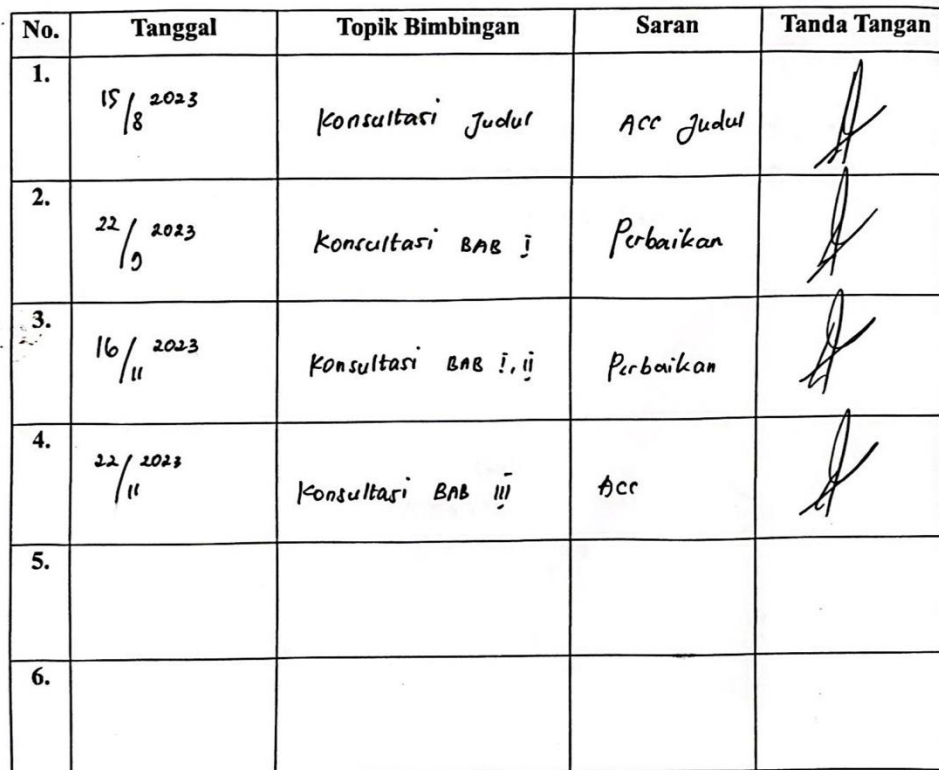 No. Tanggal Topik Bimbingan Saran Tanda Tangan
1. 15/8 2023 Konsultasi Judul ACC Judul
2. 22/9 2023 Konsultasi BAB I Perbaikan
3. 16/11 2023 Konsultasi BAB I, II Perbaikan
4. 22/11 2023 Konsultasi BAB III ACC
5.
6.